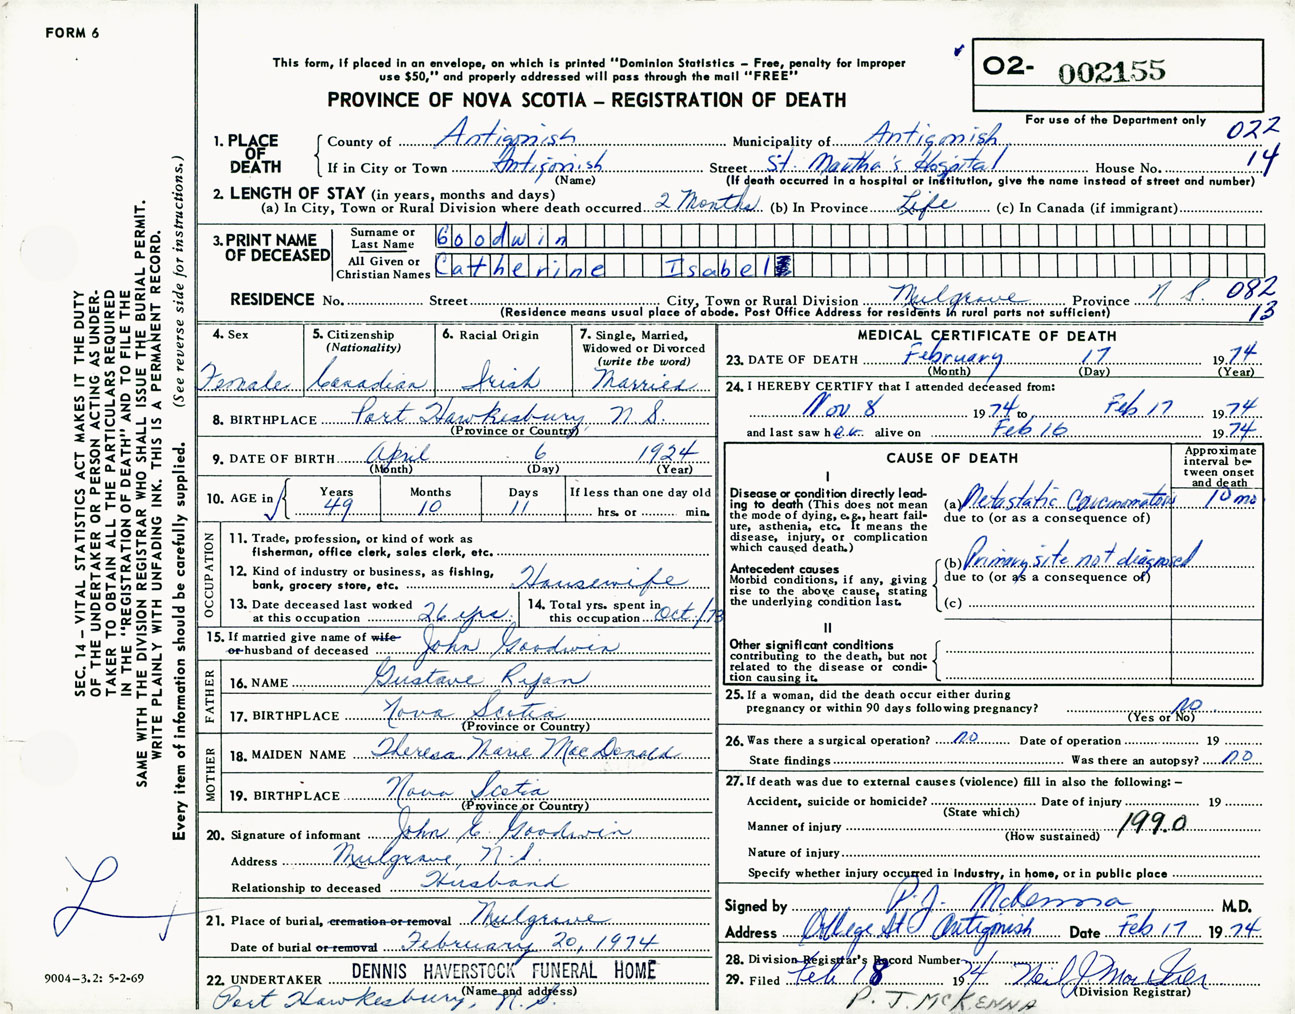 FORM 6
This form, if placed in an envelope, on which is printed "Dominion Statistics – Free, penalty for improper
use $50," and properly addressed will pass through the mail "FREE"
PROVINCE OF NOVA SCOTIA – REGISTRATION OF DEATH
O2- 002155
For use of the Department only
022
14
1. PLACE OF DEATH
County of Antigonish Municipality of Antigonish
If in City or Town Antigonish Street St. Martha's Hospital House No.
(Name) (If death occurred in a hospital or institution, give the name instead of street and number)
2. LENGTH OF STAY (in years, months and days)
(a) In City, Town or Rural Division where death occurred 2 Months (b) In Province Life (c) In Canada (if immigrant)
3. PRINT NAME OF DECEASED
Surname or Last Name Goodwin
All Given or Christian Names Catherine Isabel
RESIDENCE No. Street City, Town or Rural Division Mulgrave Province N S. 082
(Residence means usual place of abode. Post Office Address for residents in rural parts not sufficient) 13
4. Sex Female
5. Citizenship (Nationality) Canadian
6. Racial Origin Irish
7. Single, Married, Widowed or Divorced (write the word) Married
8. BIRTHPLACE Port Hawkesbury, N.S.
(Province or Country)
9. DATE OF BIRTH April 6 1924
(Month) (Day) (Year)
10. AGE in Years 49 Months 10 Days 11 If less than one day old hrs. or min.
OCCUPATION
11. Trade, profession, or kind of work as
fisherman, office clerk, sales clerk, etc.
12. Kind of industry or business, as fishing,
bank, grocery store, etc. Housewife
13. Date deceased last worked
at this occupation 26 yrs.
14. Total yrs. spent in
this occupation Oct/73
15. If married give name of wife
or husband of deceased John Goodwin
FATHER
16. NAME Gustave Ryan
17. BIRTHPLACE Nova Scotia
(Province or Country)
MOTHER
18. MAIDEN NAME Theresa Marie MacDonald
19. BIRTHPLACE Nova Scotia
(Province or Country)
20. Signature of informant John C Goodwin
Address Mulgrave, N.S.
Relationship to deceased Husband
21. Place of burial, cremation or removal Mulgrave
Date of burial or removal February 20, 1974
22. UNDERTAKER DENNIS HAVERSTOCK FUNERAL HOME
(Name and address)
Port Hawkesbury, N.S.
MEDICAL CERTIFICATE OF DEATH
23. DATE OF DEATH February 17 1974
(Month) (Day) (Year)
24. I HEREBY CERTIFY that I attended deceased from:
Nov 8 1974 to Feb 17 1974
and last saw her alive on Feb 16 1974
CAUSE OF DEATH
Approximate interval between onset and death
I
Disease or condition directly lead-
ing to death (This does not mean
the mode of dying, e.g., heart fail-
ure, asthenia, etc. It means the
disease, injury, or complication
which caused death.)
(a) Metastatic Carcinomatosis 10 mo
due to (or as a consequence of)
Antecedent causes
Morbid conditions, if any, giving
rise to the above cause, stating
the underlying condition last.
(b) Primary site not diagnosed
due to (or as a consequence of)
(c)
II
Other significant conditions
contributing to the death, but not
related to the disease or condi-
tion causing it.
25. If a woman, did the death occur either during
pregnancy or within 90 days following pregnancy? no
(Yes or No)
26. Was there a surgical operation? no Date of operation 19
State findings Was there an autopsy? no
27. If death was due to external causes (violence) fill in also the following: –
Accident, suicide or homicide? Date of injury 19
(State which)
Manner of injury 199.0
(How sustained)
Nature of injury
Specify whether injury occurred in Industry, in home, or in public place
Signed by P.J. McKenna M.D.
Address College St Antigonish Date Feb 17 1974
28. Division Registrar's Record Number
29. Filed Feb 18 1974
(Division Registrar)
P. J. McKENNA
SEC. 14 – VITAL STATISTICS ACT MAKES IT THE DUTY
OF THE UNDERTAKER OR PERSON ACTING AS UNDER-
TAKER TO OBTAIN ALL THE PARTICULARS REQUIRED
IN THE "REGISTRATION OF DEATH" AND TO FILE THE
SAME WITH THE DIVISION REGISTRAR WHO SHALL ISSUE THE BURIAL PERMIT.
WRITE PLAINLY WITH UNFADING INK. THIS IS A PERMANENT RECORD.
Every item of information should be carefully supplied. (See reverse side for instructions.)
9004–3.2: 5-2-69